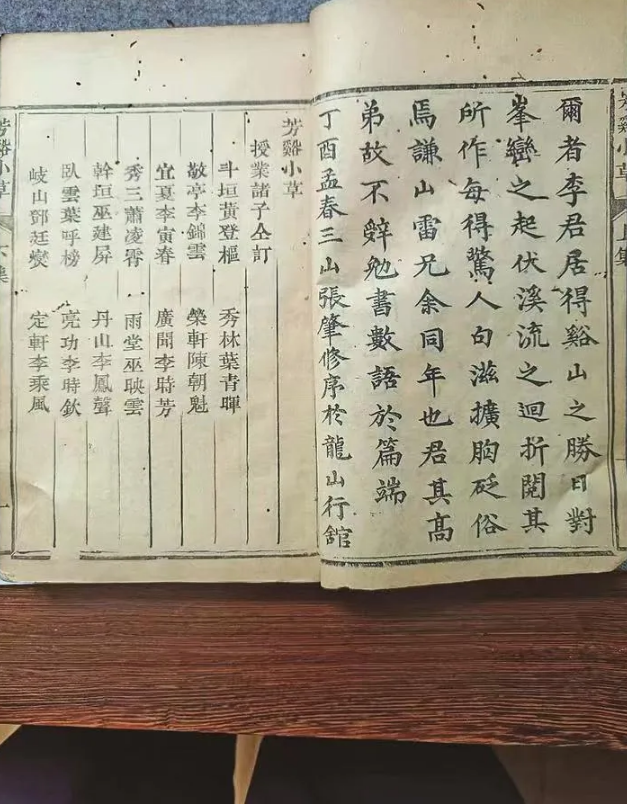 芳谿小草
爾者李君居得谿山之勝日對
峯巒之起伏溪流之迴折閱其
所作每得驚人句滋擴胸砭俗
焉謙山雷兄余同年也君其高
弟故不辭勉書數語於篇端
丁酉孟春三山張肇修序於龍山行舘
芳谿小草
授業諸子仝訂
斗垣黃登樞 秀林葉青暉
敬亭李錦雲 榮軒陳朝魁
宜夏李寅春 廣聞李時芳
秀三蕭凌霄 雨堂巫映雲
幹垣巫建屏 丹山李鳳聲
臥雲葉呼榜 亮功李時欽
岐山鄧廷燮 定軒李乘風
芳谿小草